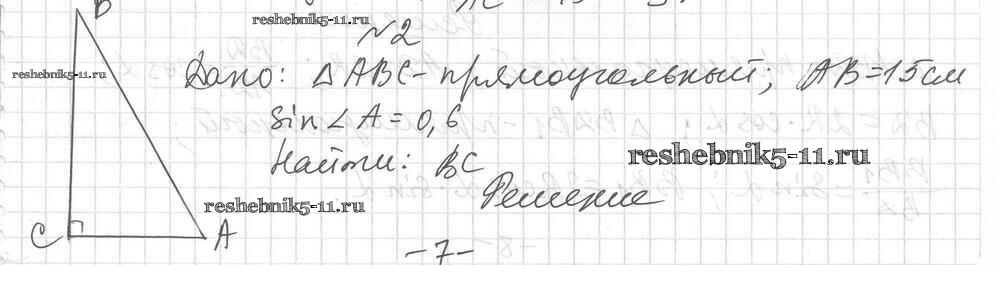 reshebnik5-11.ru
№2
B
reshebnik5-11.ru
Дано: △ABC - прямоугольный; AB=15см
sin∠A=0,6
Найти: BC
reshebnik5-11.ru
Решение
reshebnik5-11.ru
C A
-7-